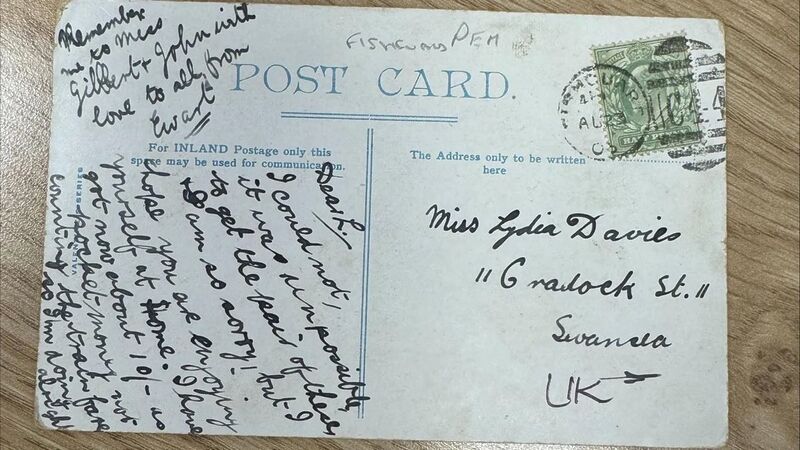 Remember
me to Miss
Gilbert & John with
love to all, from
Ewart
FISHGUARD PEM
POST CARD.
For INLAND Postage only this
space may be used for communication.
The Address only to be written
here
VALENTINE'S SERIES
AU 23
Dear L,
I could not,
it was impossible
to get the pair of these
& I am so sorry! but I
hope you are enjoying
yourself at home. I have
got now about 10/- as
pocket money not
counting the train fare
so I'm doing
alright
Miss Lydia Davies
11 Cradock St.
Swansea
UK